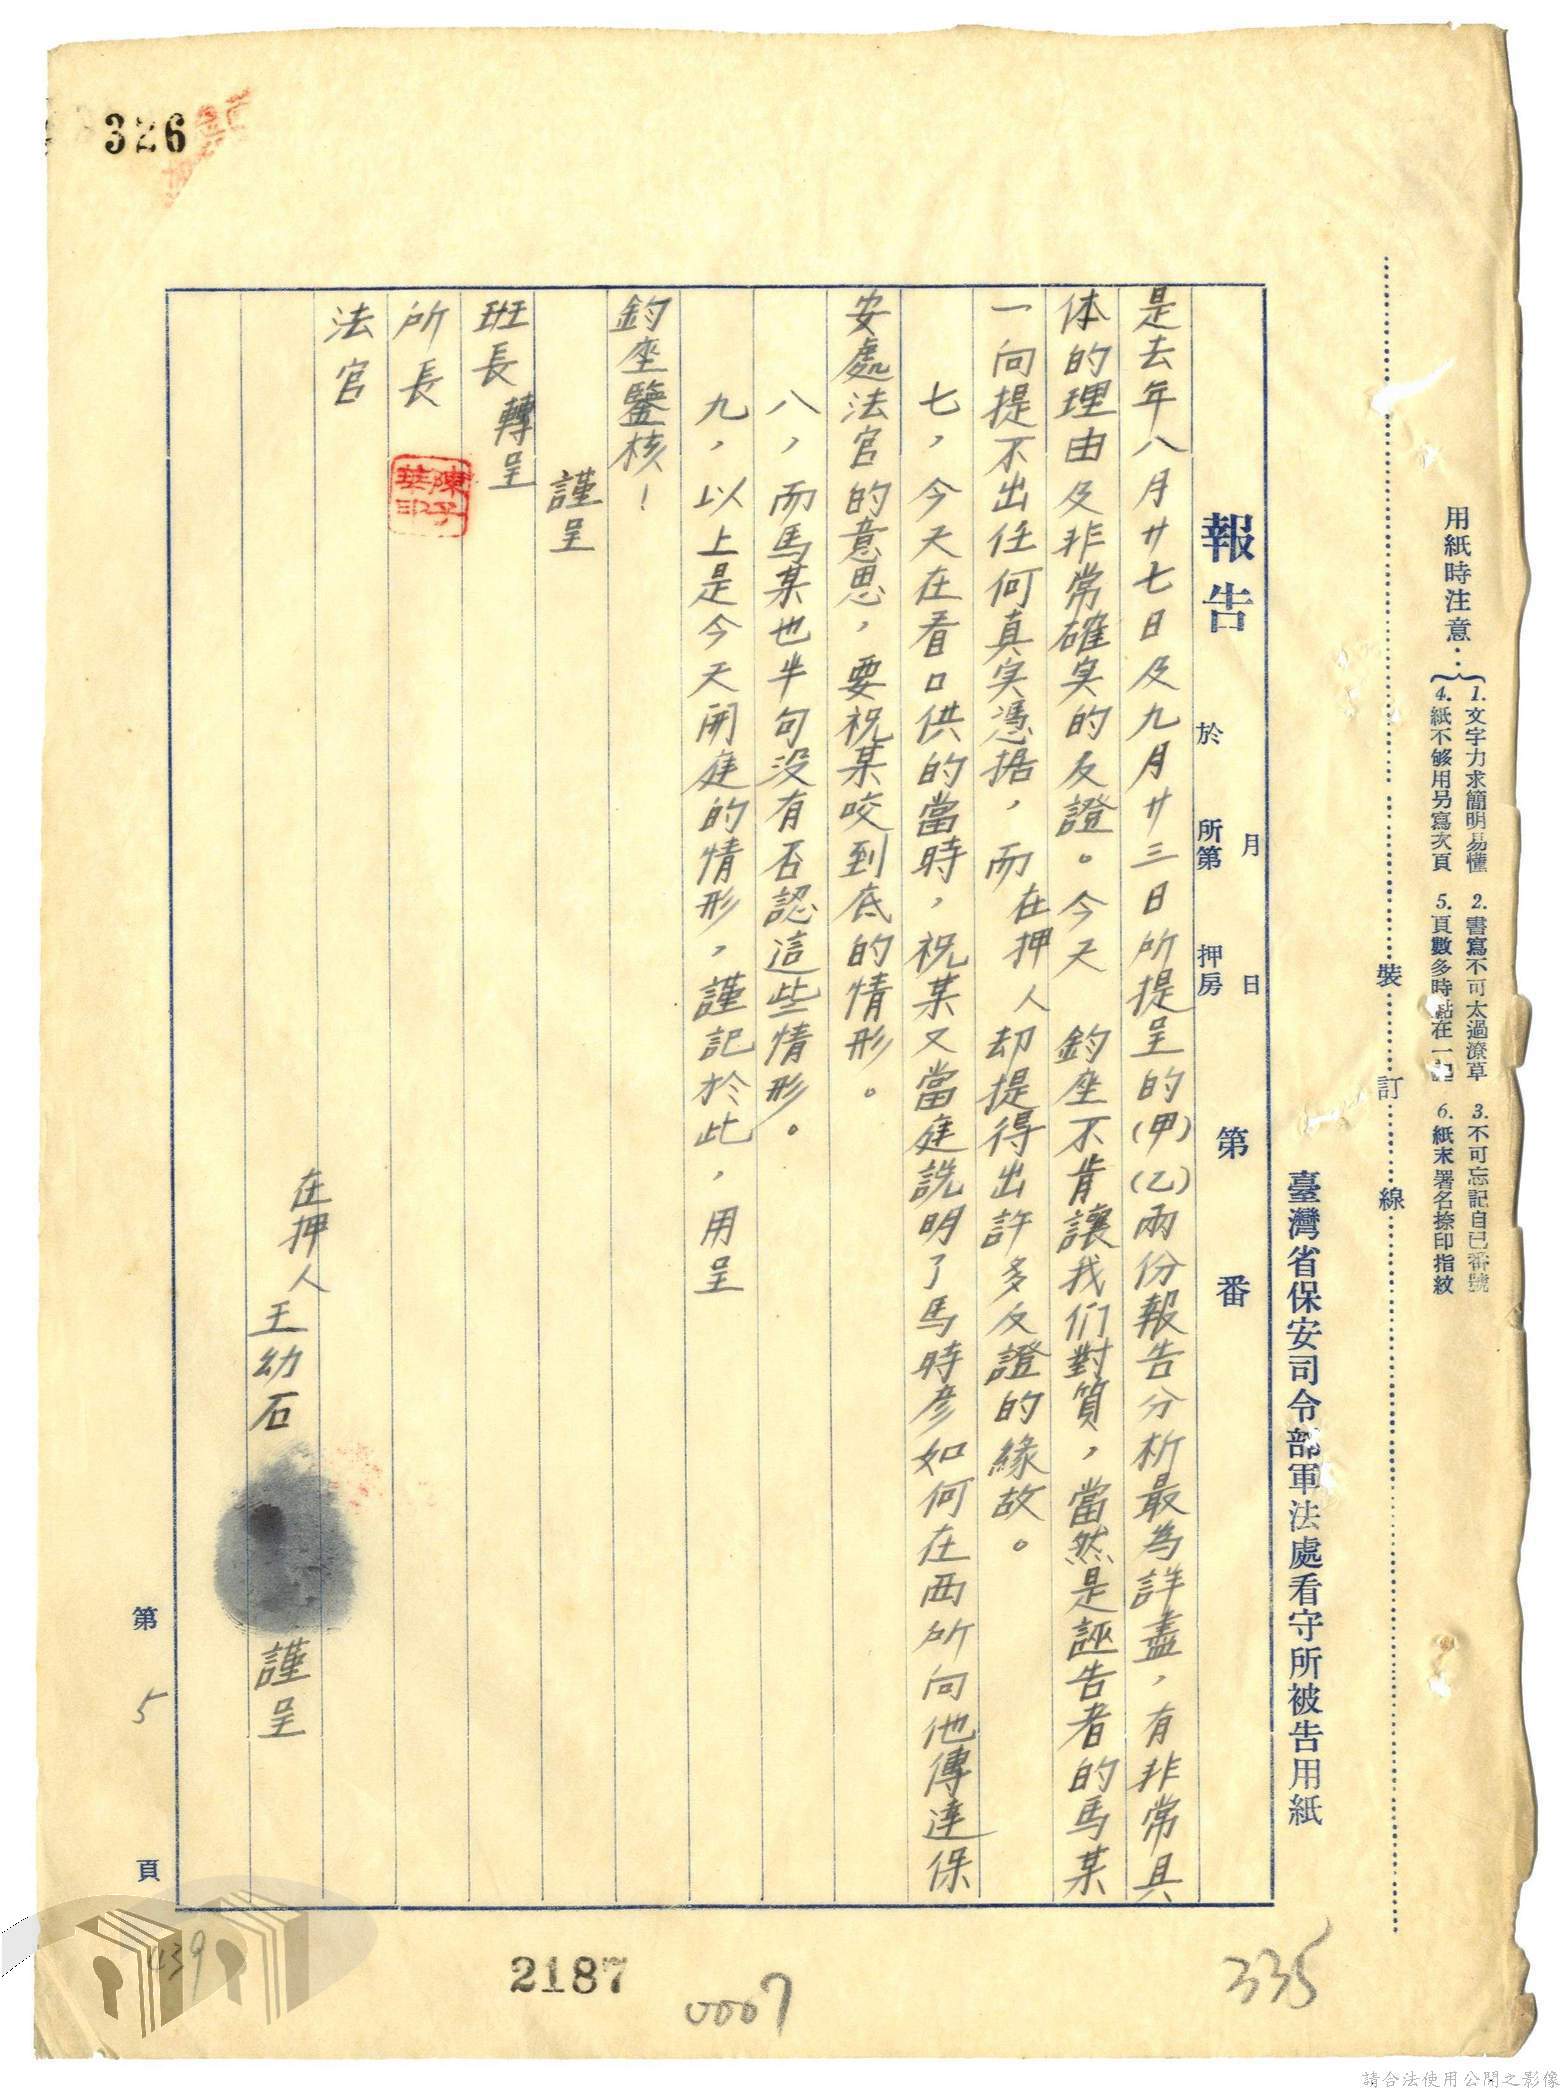 326
用紙時注意：
1. 文字力求簡明易懂 2. 書寫不可太過潦草 3. 不可忘記自已番號
4. 紙不够用另寫次頁 5. 頁數多時黏在一起 6. 紙末署名捺印指紋
裝 訂 線
臺灣省保安司令部軍法處看守所被告用紙
報告 於 月 日 所第 押房 第 番
是去年八月廿七日及九月廿三日所提呈的(甲)(乙)兩份報告分析最為詳盡，有非常具
体的理由及非常確実的反證。今天 鈞座不肯讓我们對質，當然是誣告者的馬某
一向提不出任何真実憑据，而在押人却提得出許多反證的緣故。
七，今天在看口供的當時，祝某又當庭説明了馬時彥如何在西所向他傳達保
安處法官的意思，要祝某咬到底的情形。
八，而馬某也半句没有否認這些情形。
九，以上是今天開庭的情形，謹記於此，用呈
鈞座鑒核！
謹呈
班長 轉呈
所長
法官
在押人 王幼石 謹呈
第 5 頁
439
2187
0007
335
請合法使用公開之影像